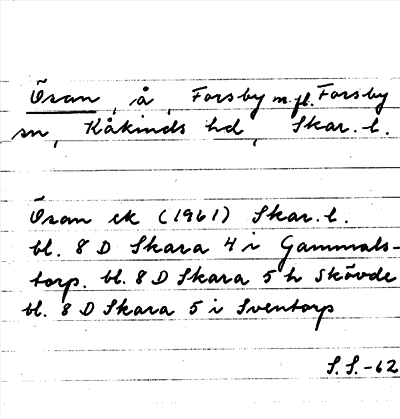 Ösan, å, Forsby m.fl. Forsby
sn, Kåkinds hd, Skar. l.
Ösan ek (1961) Skar. l.
bl. 8 D Skara 4 i Gammals-
torp. bl. 8 D Skara 5 h Skövde
bl. 8 D Skara 5 i Sventorp
S.S.-62